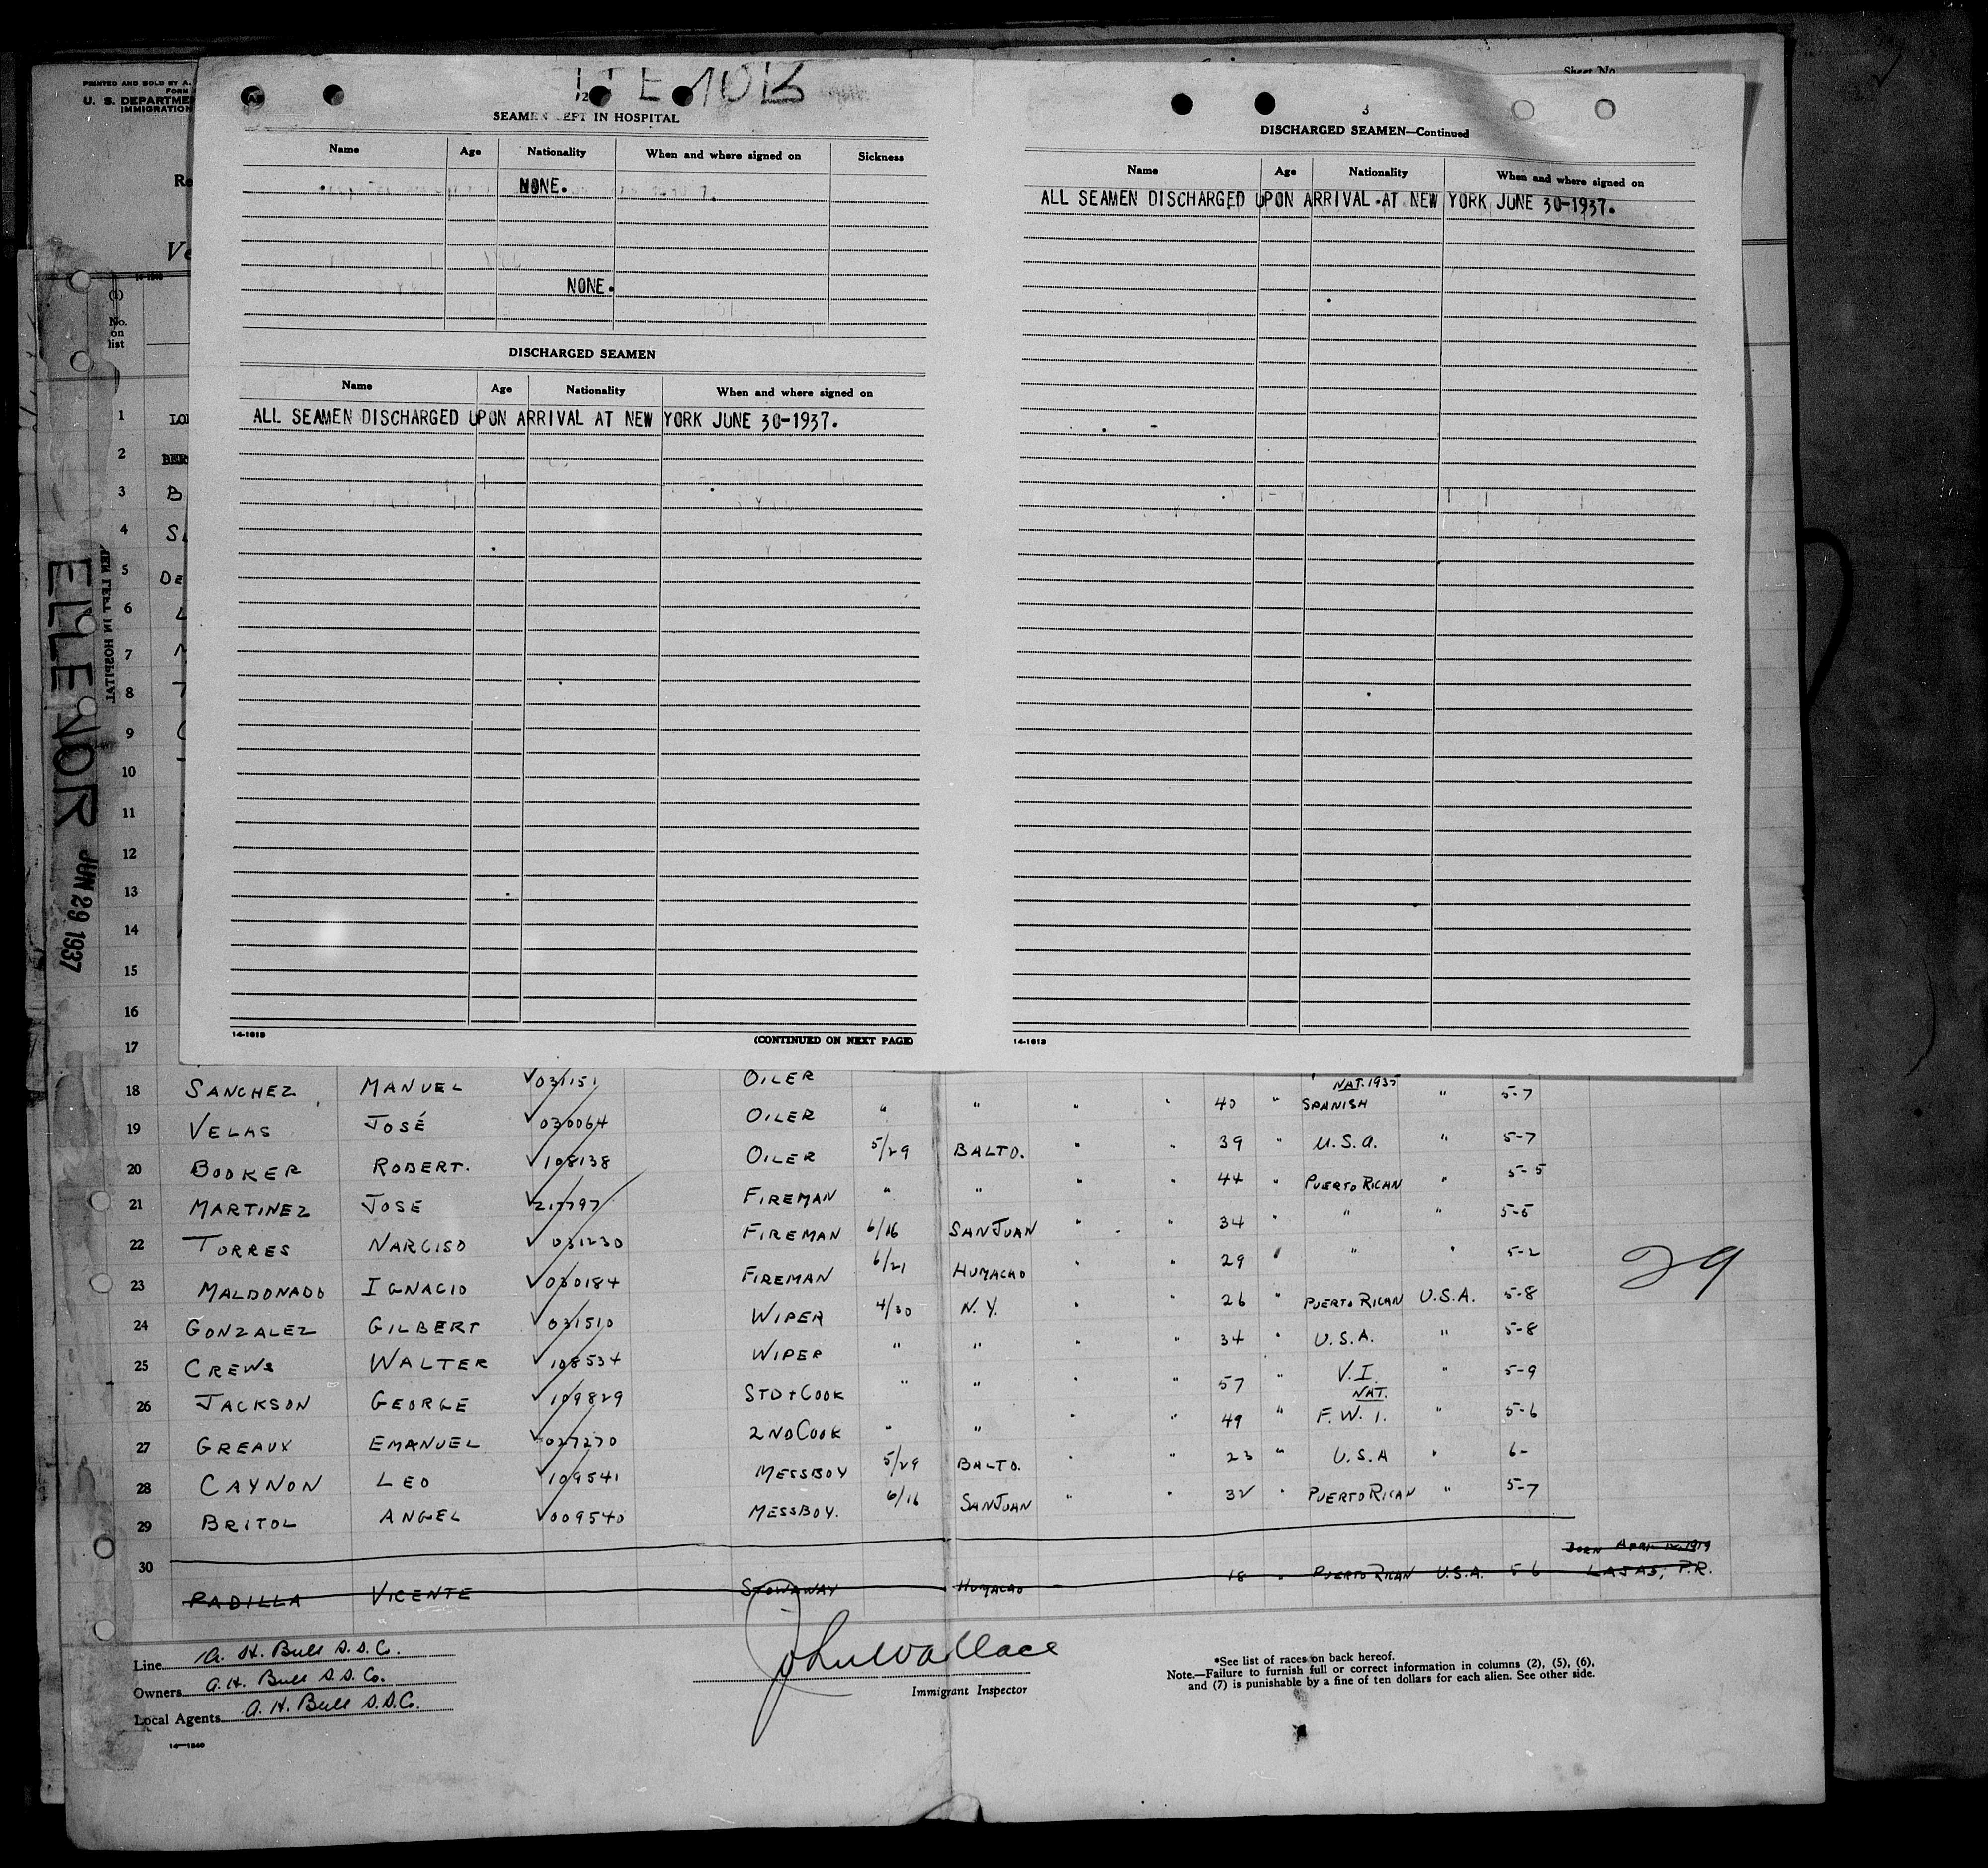 PRINTED AND SOLD BY A.
FORM
U. S. DEPARTME
IMMIGRATION
Sheet No.
Re
Ve
2
SEAMEN LEFT IN HOSPITAL
Name Age Nationality When and where signed on Sickness
NONE.
NONE.
DISCHARGED SEAMEN
Name Age Nationality When and where signed on
ALL SEAMEN DISCHARGED UPON ARRIVAL AT NEW YORK JUNE 30-1937.
14-1613
(CONTINUED ON NEXT PAGE)
3
DISCHARGED SEAMEN—Continued
Name Age Nationality When and where signed on
ALL SEAMEN DISCHARGED UPON ARRIVAL AT NEW YORK JUNE 30-1937.
14-1613
ELLENOR JUN 29 1937
(1)
No.
on
list
1 LO
2 BER
3 B
4 SL
5 DE
6 L
7 M
8 T
9
10
11
12
13
14
15
16
17
18 SANCHEZ MANUEL 031151 OILER
NAT. 1935
19 VELAS JOSÉ 030064 OILER " " " " 40 " SPANISH " 5-7
20 BOOKER ROBERT. 108138 OILER 5/29 BALTO. " " 39 " U.S.A. " 5-7
21 MARTINEZ JOSE 217797 FIREMAN " " " " 44 " PUERTO RICAN " 5-5
22 TORRES NARCISO 031230 FIREMAN 6/16 SAN JUAN " " 34 " " " 5-5
23 MALDONADO IGNACIO 030184 FIREMAN 6/21 HUMACAO " " 29 " " " 5-2
24 GONZALEZ GILBERT 031510 WIPER 4/30 N.Y. " " 26 " PUERTO RICAN U.S.A. 5-8
25 CREWS WALTER 108534 WIPER " " " " 34 " U.S.A. " 5-8
26 JACKSON GEORGE 109829 STD + COOK " " " " 57 " V.I. " 5-9
NAT.
27 GREAUX EMANUEL 027270 2ND COOK " " " " 49 " F.W.I. " 5-6
28 CAYNON LEO 109541 MESSBOY 5/29 BALTO. " " 23 " U.S.A " 6-
29 BRITOL ANGEL 009540 MESSBOY. 6/16 SAN JUAN " " 32 " PUERTO RICAN " 5-7
29
30
BORN APRIL 1919
PADILLA VICENTE STOWAWAY HUMACAO 18 " PUERTO RICAN U.S.A. 5 6 LAJAS, P.R.
Line A. H. Bull S.S. Co.
Owners A. H. Bull S.S. Co.
Local Agents A. H. Bull S.S. Co.
14—1240
John Wallace
Immigrant Inspector
*See list of races on back hereof.
Note.—Failure to furnish full or correct information in columns (2), (5), (6),
and (7) is punishable by a fine of ten dollars for each alien. See other side.